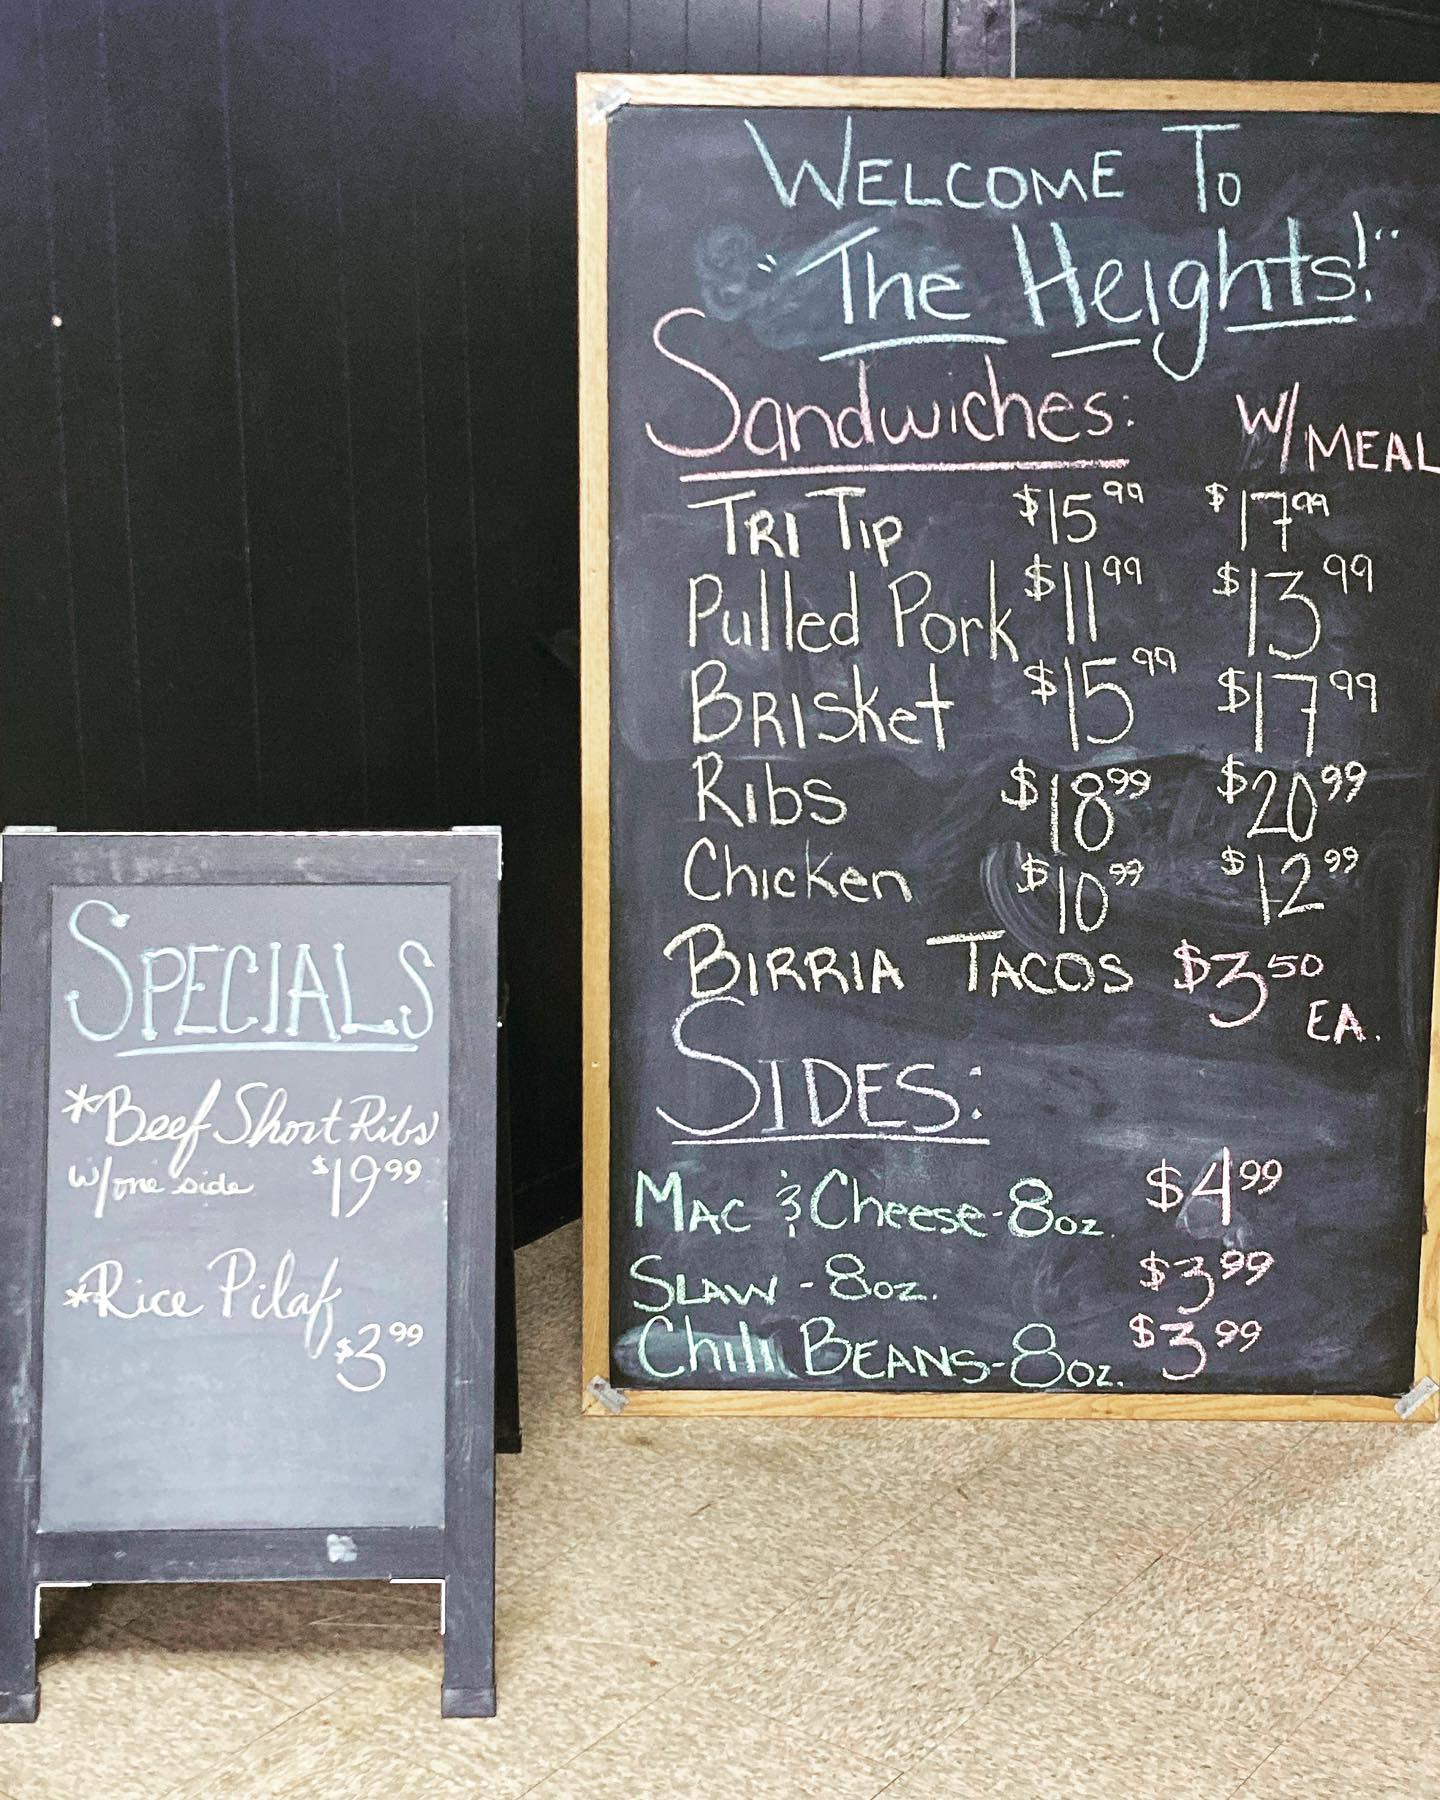 WELCOME TO
"The Heights!"
Sandwiches: W/MEAL
TRI TIP $15.99 $17.99
Pulled Pork $11.99 $13.99
BRISKet $15.99 $17.99
Ribs $18.99 $20.99
Chicken $10.99 $12.99
BIRRIA TACOS $3.50
EA.
SIDES:
MAC & Cheese-8oz. $4.99
SLAW - 8oz. $3.99
Chili BEANS-8oz. $3.99
SPECIALS
*Beef Short Ribs
w/one side $19.99
*Rice Pilaf
$3.99